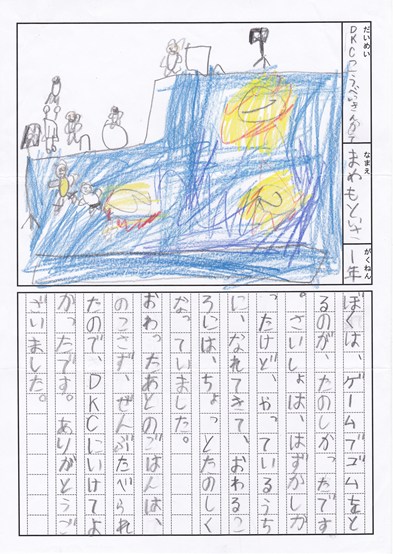 だいめい
DKC
なまえ
がくねん
1年
ぼくは、ゲームでゴムをと
るのが、たのしかったです
。さいしょは、はずかしか
ったけど、やっているうち
に、なれてきて、おわるこ
ろには、ちょっとたのしく
なっていました。
おわったあとのごはんは、
のこさず、ぜんぶたべられ
たので、DKCにいけてよ
かったです。ありがとうご
ざいました。